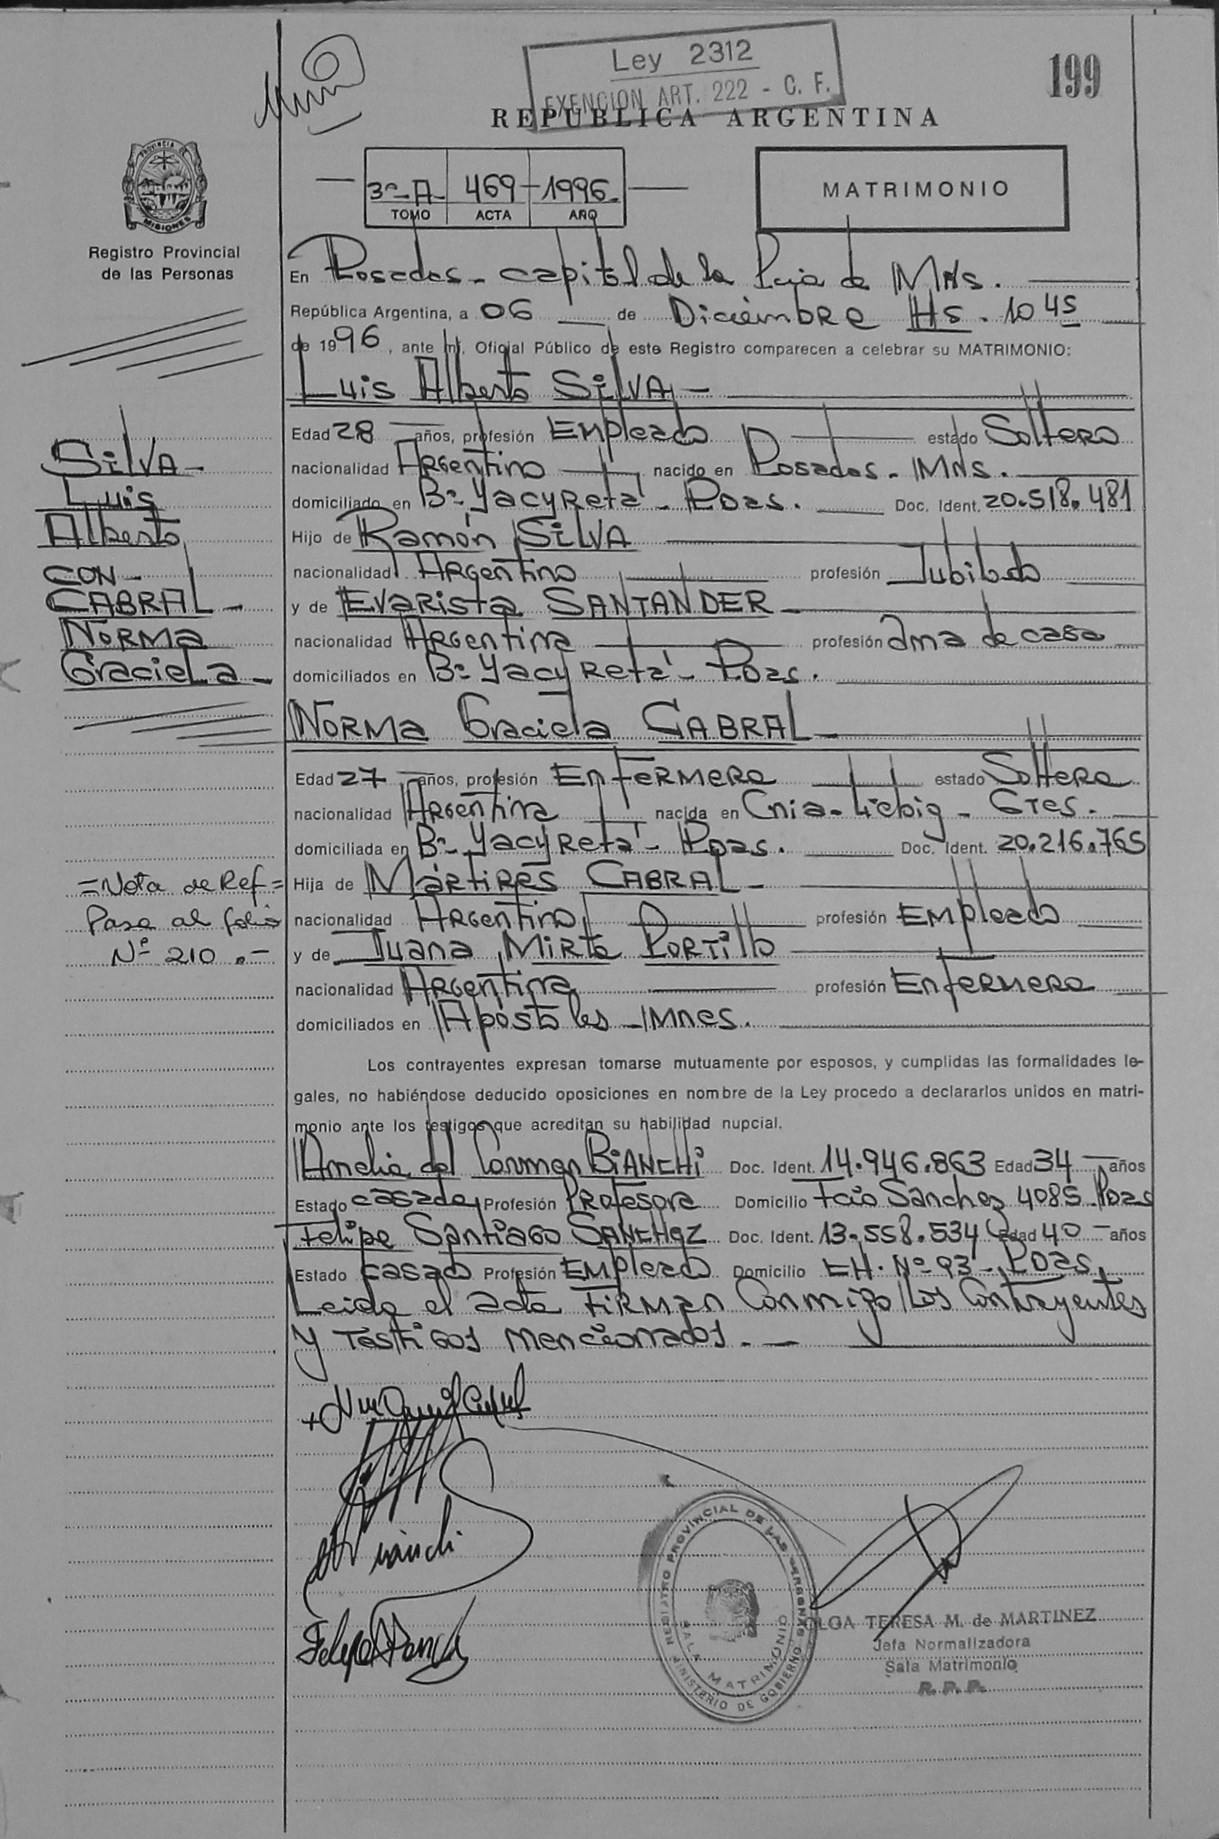 Ley 2312
EXENCION ART. 222 - C. F.
199
REPUBLICA ARGENTINA
PROVINCIA DE MISIONES
Registro Provincial
de las Personas
3º-A 469 1996
TOMO ACTA AÑO
MATRIMONIO
En Posadas - capital de la Pcia de MNS.
República Argentina, a 06 de Diciembre Hs. 10 45
de 1996, ante mí, Oficial Público de este Registro comparecen a celebrar su MATRIMONIO:
Luis Alberto SILVA -
Edad 28 años, profesión Empleado estado Soltero
nacionalidad Argentino nacido en Posadas - MNS.
domiciliado en Bº Yacyretá - Pdas. Doc. Ident. 20.518.481
Hijo de Ramón SILVA
nacionalidad Argentino profesión Jubilado
y de Evarista SANTANDER -
nacionalidad Argentina profesión Ama de casa
domiciliados en Bº Yacyretá - Pdas.
Norma Graciela CABRAL -
Edad 27 años, profesión Enfermera estado Soltera
nacionalidad Argentina nacida en Cnia. Liebig - Ctes.
domiciliada en Bº Yacyretá - Pdas. Doc. Ident. 20.216.765
Hija de Mártires CABRAL -
nacionalidad Argentino profesión Empleado
y de Juana Mirta PORTILLO
nacionalidad Argentina profesión Enfermera
domiciliados en Apóstoles - Mnes.
Los contrayentes expresan tomarse mutuamente por esposos, y cumplidas las formalidades le-
gales, no habiéndose deducido oposiciones en nombre de la Ley procedo a declararlos unidos en matri-
monio ante los testigos que acreditan su habilidad nupcial.
Amelia del Carmen BIANCHI Doc. Ident. 14.946.863 Edad 34 años
Estado casada Profesión Profesora Domicilio Fcio Sanchez 4085 Pdas
Felipe Santiago SANCHEZ Doc. Ident. 13.558.534 Edad 40 - años
Estado casado Profesión Empleado Domicilio CH. Nº 93 - Pdas.
Leida el acta Firman Conmigo los Contrayentes
y Testigos mencionados. -
SILVA -
Luis
Alberto
CON -
CABRAL -
Norma
Graciela -
= Nota de Ref =
Pasa al folio
Nº 210 . -
Bianchi
REGISTRO PROVINCIAL DE LAS PERSONAS
SALA MATRIMONIO
MINISTERIO DE GOBIERNO
OLGA TERESA M. de MARTINEZ
Jefa Normalizadora
Sala Matrimonio
R. P. P.